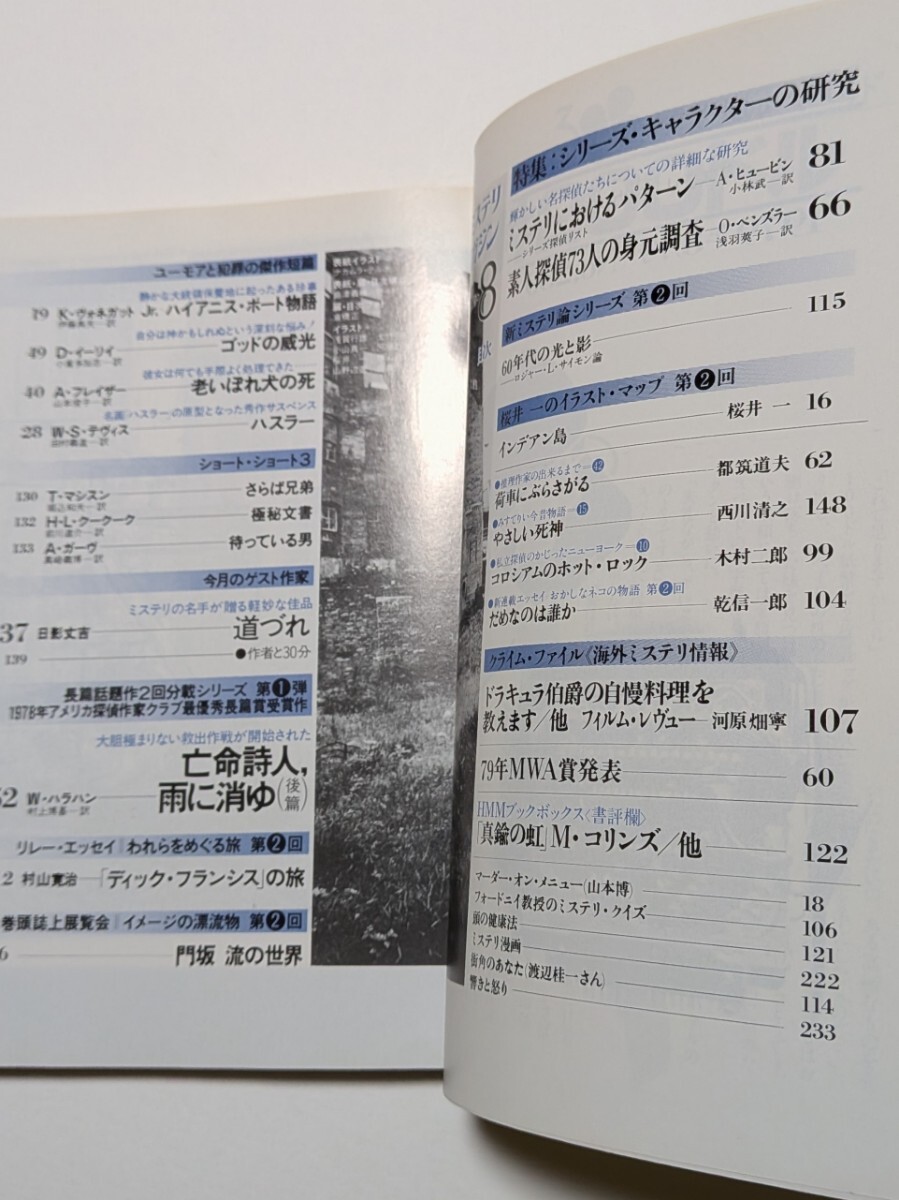 ユーモアと犯罪の傑作短篇
静かな大統領保養地に起ったある珍事
19 K・ヴォネガット Jr. ハイアニス・ポート物語
伊藤典夫―訳
自分は神かもしれぬという深刻な悩み!
49 D・イーリイ ゴッドの威光
彼女は何でも手際よく処理できた
40 A・フレイザー 老いぼれ犬の死
名画「ハスラー」の原型となった秀作サスペンス
28 W・S・テヴィス ハスラー
ショート・ショート3
130 T・マシスン さらば兄弟
132 H・L・クークーク 極秘文書
133 A・ガーヴ 待っている男
今月のゲスト作家
ミステリの名手が贈る軽妙な佳品
37 日影丈吉 道づれ
139 ●作者と30分
長篇話題作2回分載シリーズ 第1弾
1978年アメリカ探偵作家クラブ最優秀長篇賞受賞作
大胆極まりない救出作戦が開始された
亡命詩人,
52 W・ハラハン 雨に消ゆ(後篇)
村上博基―訳
リレー・エッセイ‖われらをめぐる旅 第2回
2 村山寛治―「ディック・フランシス」の旅
巻頭誌上展覧会‖イメージの漂流物 第2回
6 門坂 流の世界
ステリ
ジン
8
特集:シリーズ・キャラクターの研究
輝かしい名探偵たちについての詳細な研究
ミステリにおけるパターン―A・ヒュービン 81
―シリーズ探偵リスト 小林武―訳
素人探偵73人の身元調査―O・ペンズラー 66
浅羽莢子―訳
新ミステリ論シリーズ 第2回
60年代の光と影 115
―ロジャー・L・サイモン論
桜井一のイラスト・マップ 第2回
インデアン島 桜井一 16
●推理作家の出来るまで―42
荷車にぶらさがる 都筑道夫 62
●みすてりい今昔物語―15
やさしい死神 西川清之 148
●私立探偵のかじったニューヨーク―10
コロシアムのホット・ロック 木村二郎 99
●新連載エッセイ おかしなネコの物語 第2回
だめなのは誰か 乾信一郎 104
クライム・ファイル《海外ミステリ情報》
ドラキュラ伯爵の自慢料理を
教えます/他 フィルム・レヴュー―河原畑寧 107
79年MWA賞発表 60
HMMブックボックス〈書評欄〉
「真鍮の虹」M・コリンズ/他 122
マーダー・オン・メニュー(山本博) 18
フォードニイ教授のミステリ・クイズ 106
頭の健康法 121
ミステリ漫画 222
街角のあなた(渡辺桂一さん) 114
響きと怒り 233